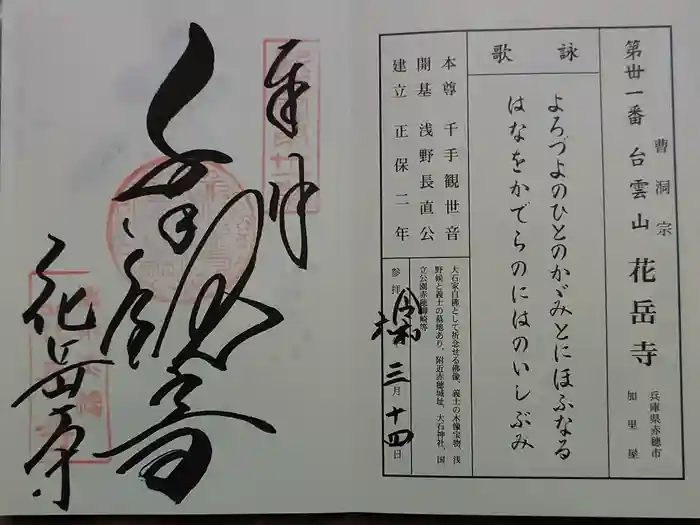 第丗一番 曹洞宗 台雲山 花岳寺
兵庫県赤穂市
加里屋
詠歌
よろづよのひとのかゞみとにほふなる
はなをかでらのにはのいしぶみ
本尊 千手観世音
開基 浅野長直公
建立 正保二年
大石家自佛として祈念せる佛像、義士の木像宝物、浅
野候と義士の墓地あり、附近赤穂城址、大石神社、国
立公園赤穂御崎等
参拝 三月十四日
奉拝
千手観音
花岳寺